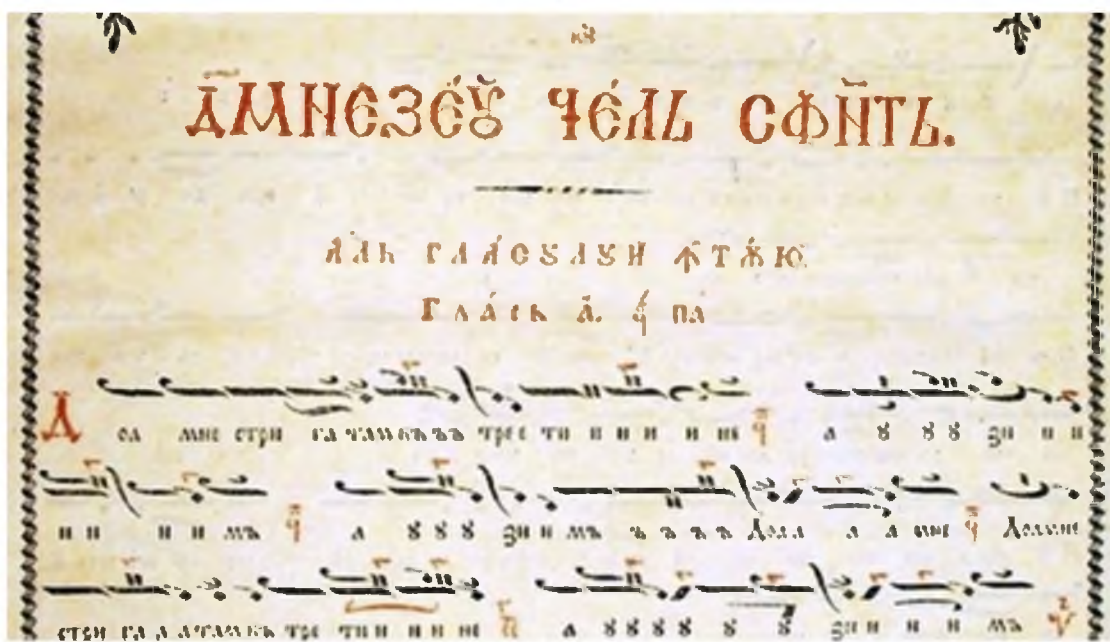 Д҃МНЕЗЕ́Ꙋ ЧЕ́ЛЬ СФН҃ТЬ.
АЛЬ ГЛА́СꙊЛꙊИ ꙞТѪ́Ю.
ГЛА́СЬ А҃. ПА
Доа мне стри га там къ ъ ъ тре ти и и и и не а ꙋ ꙋ ꙋ зи и и
и и и и мъ а ꙋ ꙋ ꙋ зи и мъ ъ ъ ъ ъ а а мне Доамне
стри га а атам къ тре ти и и и не а ꙋ ꙋ ꙋ ꙋ ꙋ ꙋ зи и и мъ